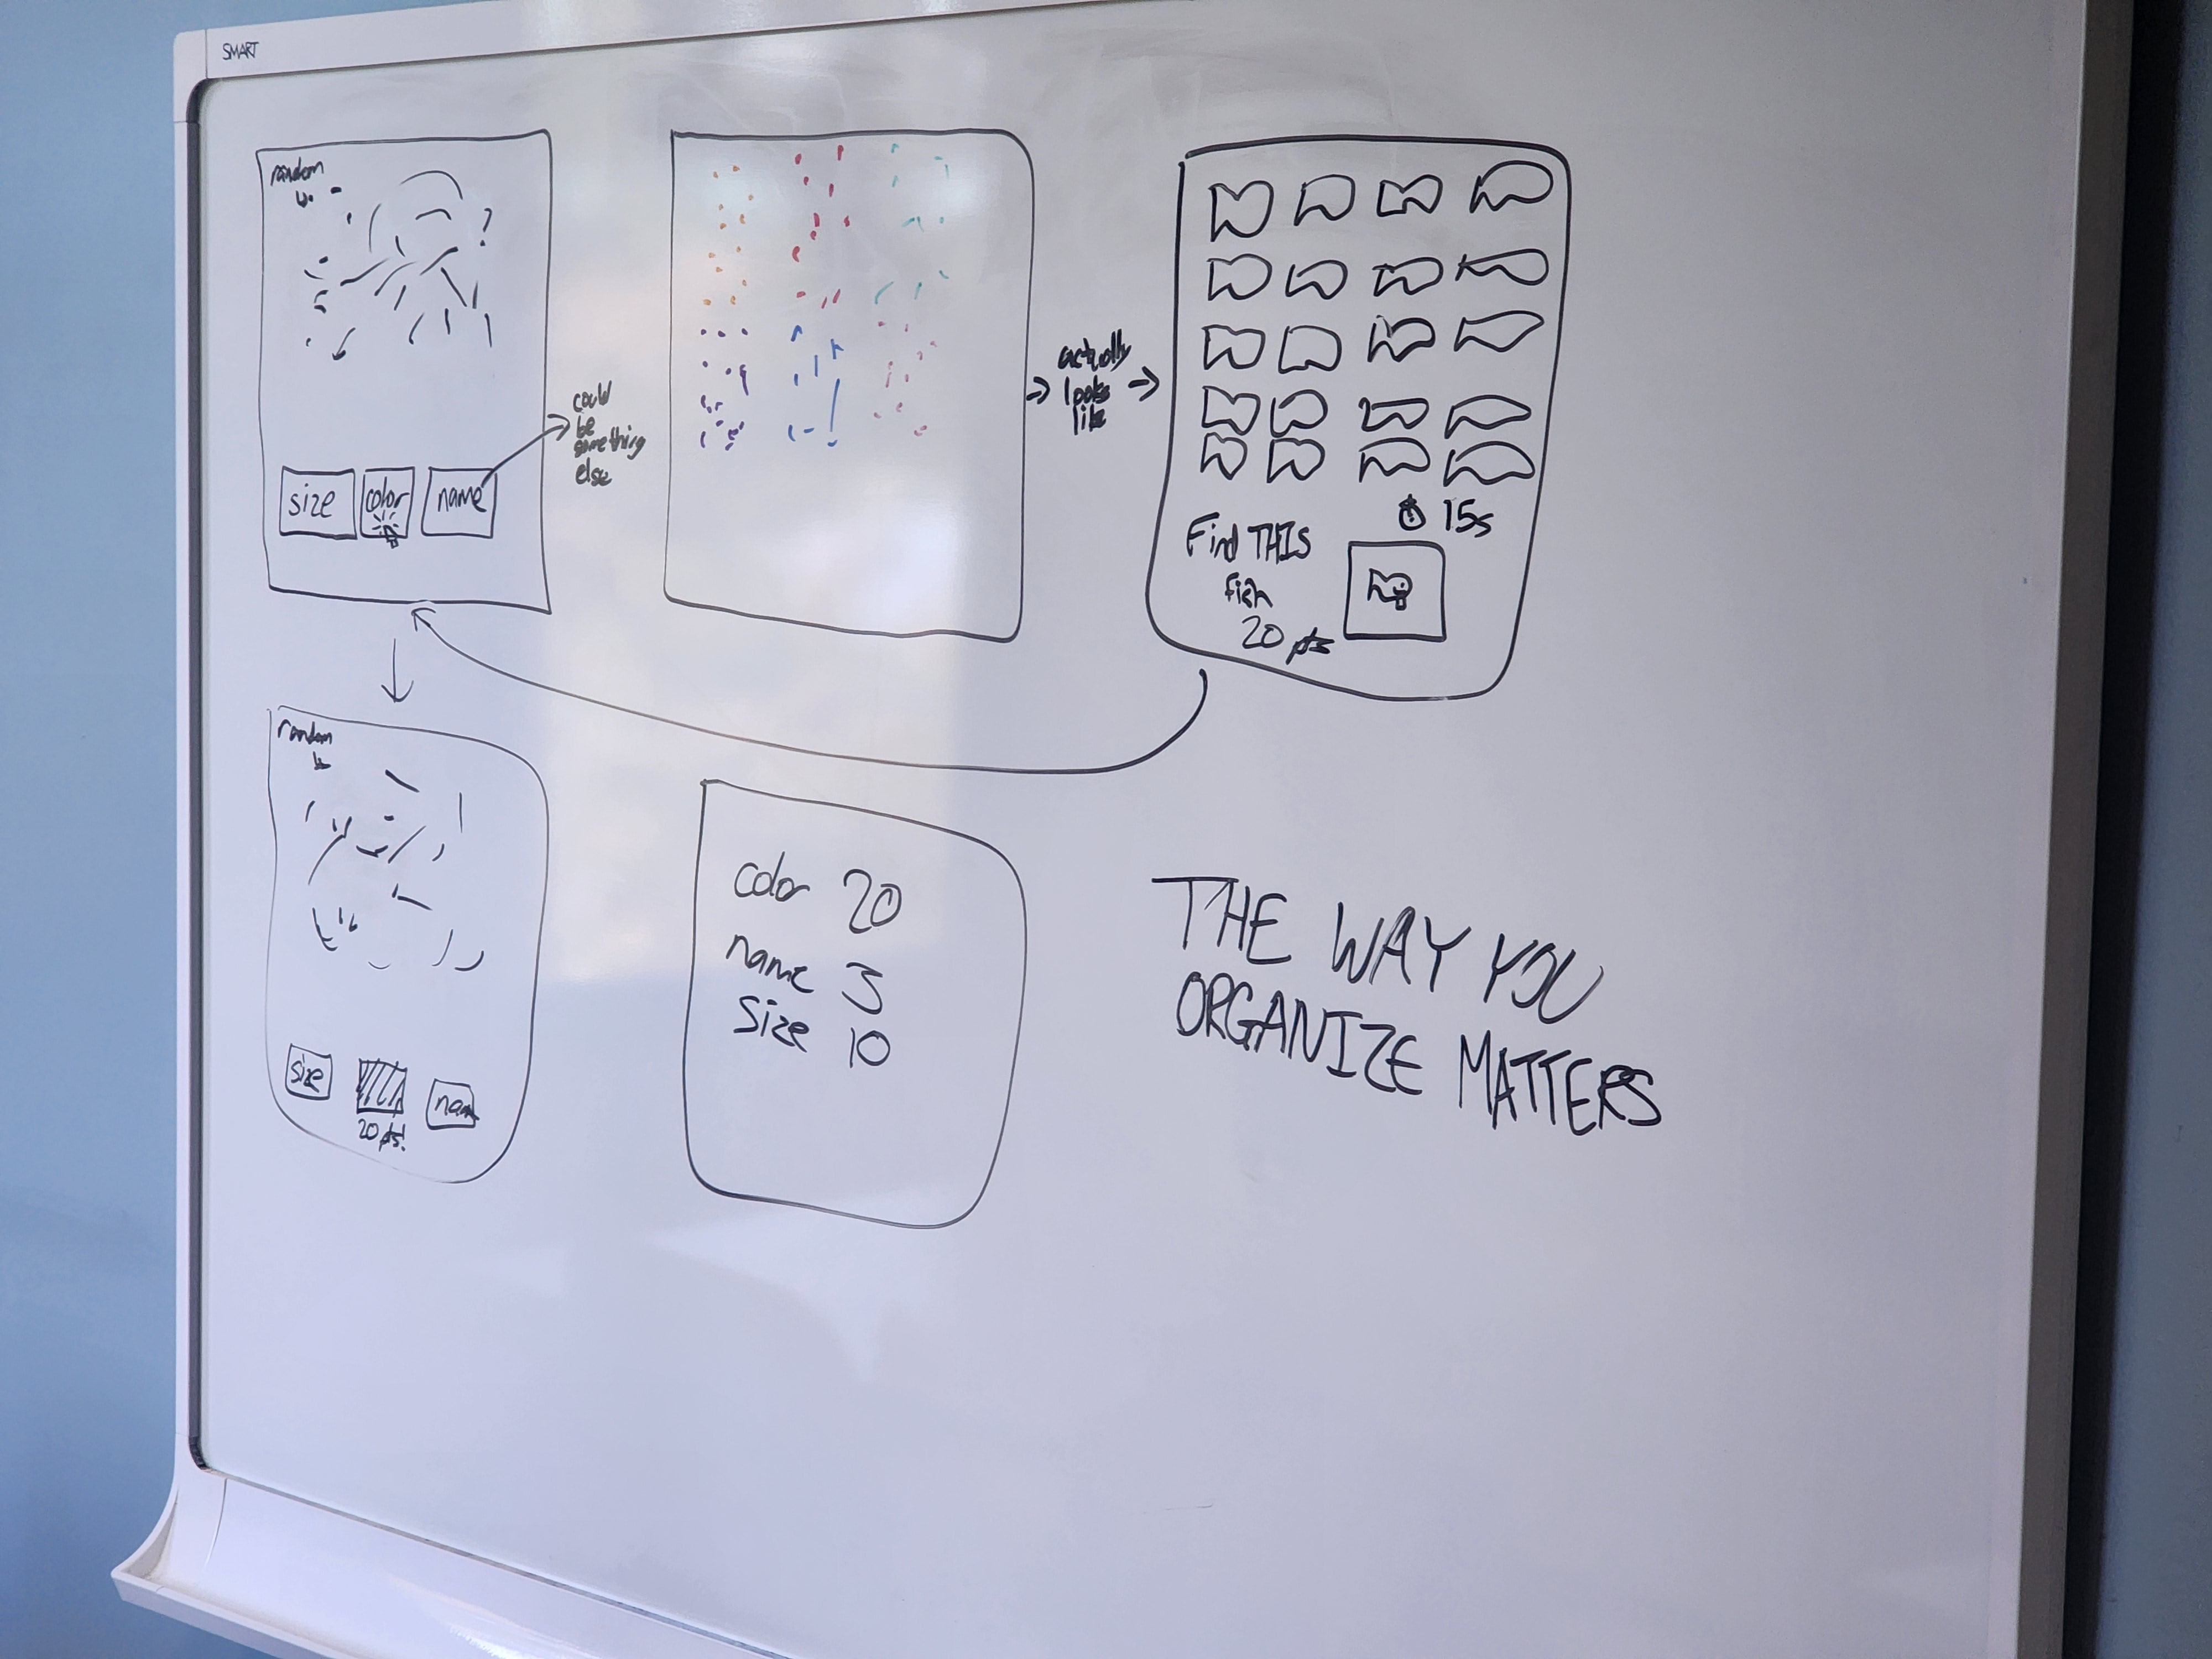 SMART
random
?
size
color
name
could
be
something
else
actually
looks
like
15s
Find THIS
fish
20 pts
random
size
nam
20 pts!
color 20
name 3
Size 10
THE WAY YOU
ORGANIZE MATTERS